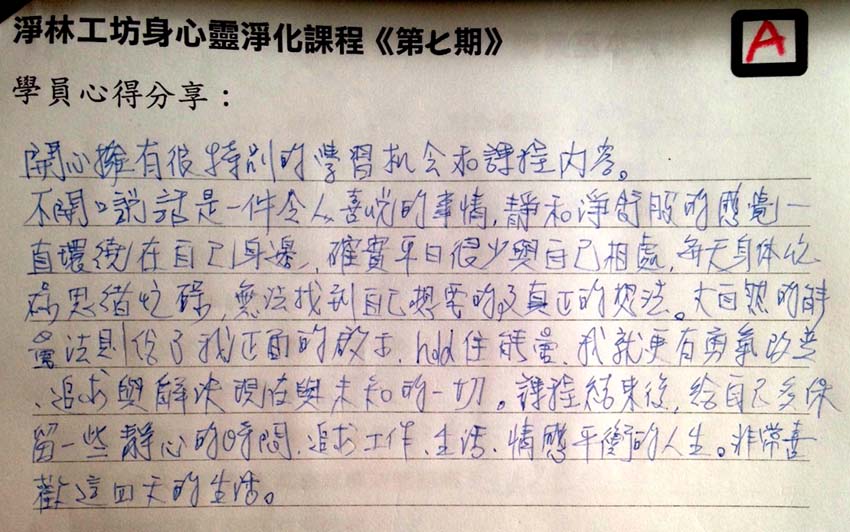 淨林工坊身心靈淨化課程《第七期》
A
學員心得分享：
開心擁有很特別的學習机会和課程内容。
不開口說話是一件令人喜悦的事情,靜和淨舒服的感覺一
直環繞在自己身邊,確實平日很少與自己相處,每天身体忙
碌思緒忙碌,無法找到自己想要的及真正的想法。大自然的能
量法則給了我正面的啟示、hold住能量、我就更有勇氣改善
、追求與解决現在與未知的一切。課程結束後,給自己多保
留一些靜心的時間、追求工作、生活、情感平衡的人生。非常喜
歡這四天的生活。